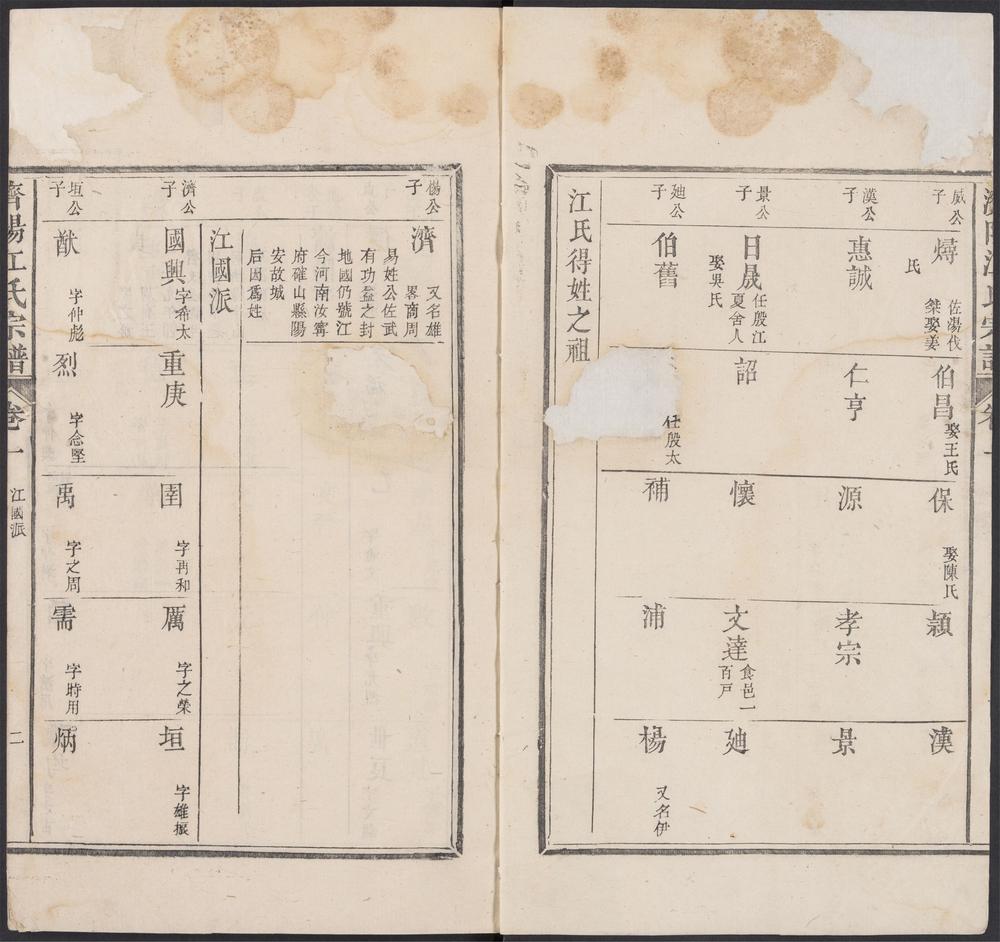 威公子
燖
佐湯伐桀娶姜氏
伯昌
娶王氏
保
娶陳氏
顥
漢
漢公子
惠誠
仁亨
源
孝宗
景
景公子
日晟
任殷江夏舍人
娶吳氏
詔
懷
文達
食邑一百戸
廸
廸公子
伯舊
任殷太
補
浦
楊
又名伊
江氏得姓之祖
楊公子
濟
又名雄
畧商周
易姓公佐武
有功益之封
地國仍號江
今河南汝寧
府確山縣陽
安故城
后因爲姓
江國派
濟公子
國興
字希太
重庚
圉
字冉和
厲
字之榮
垣
字雄振
垣公子
猷
字仲彪
烈
字念堅
禹
字之周
需
字時用
炳
濟陽江氏宗譜
卷一
江國派
二